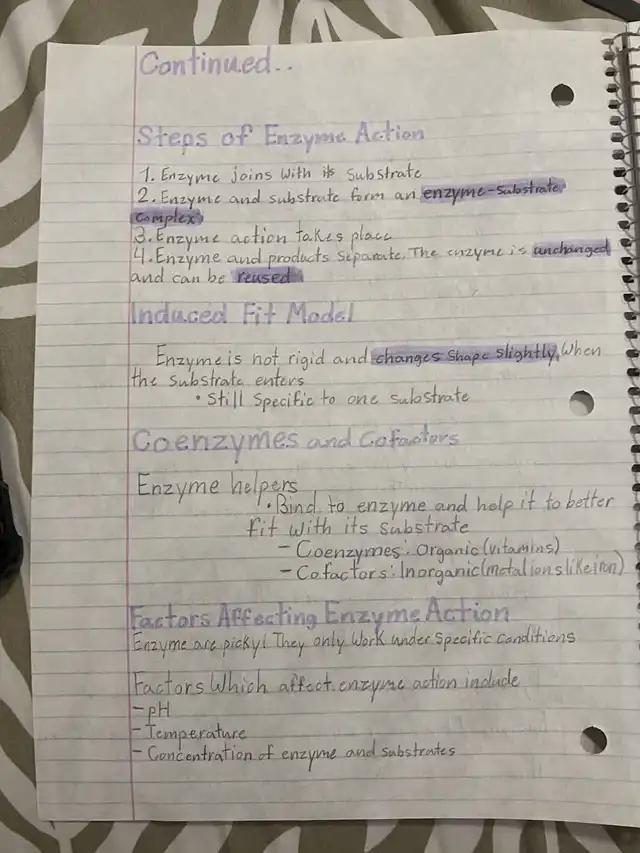 Continued..
Steps of Enzyme Action
1. Enzyme joins with its substrate
2. Enzyme and substrate form an enzyme-substrate
complex
3. Enzyme action takes place
4. Enzyme and products separate. The enzyme is unchanged
and can be reused
Induced Fit Model
Enzyme is not rigid and changes shape slightly, when
the substrate enters
• Still specific to one substrate
Coenzymes and Cofactors
Enzyme helpers
• Bind to enzyme and help it to better
fit with its substrate
- Coenzymes: Organic (vitamins)
- Cofactors: Inorganic (metal ions like iron)
Factors Affecting Enzyme Action
Enzyme are picky! They only work under specific conditions
Factors which affect enzyme action include
- pH
- Temperature
- Concentration of enzyme and substrates